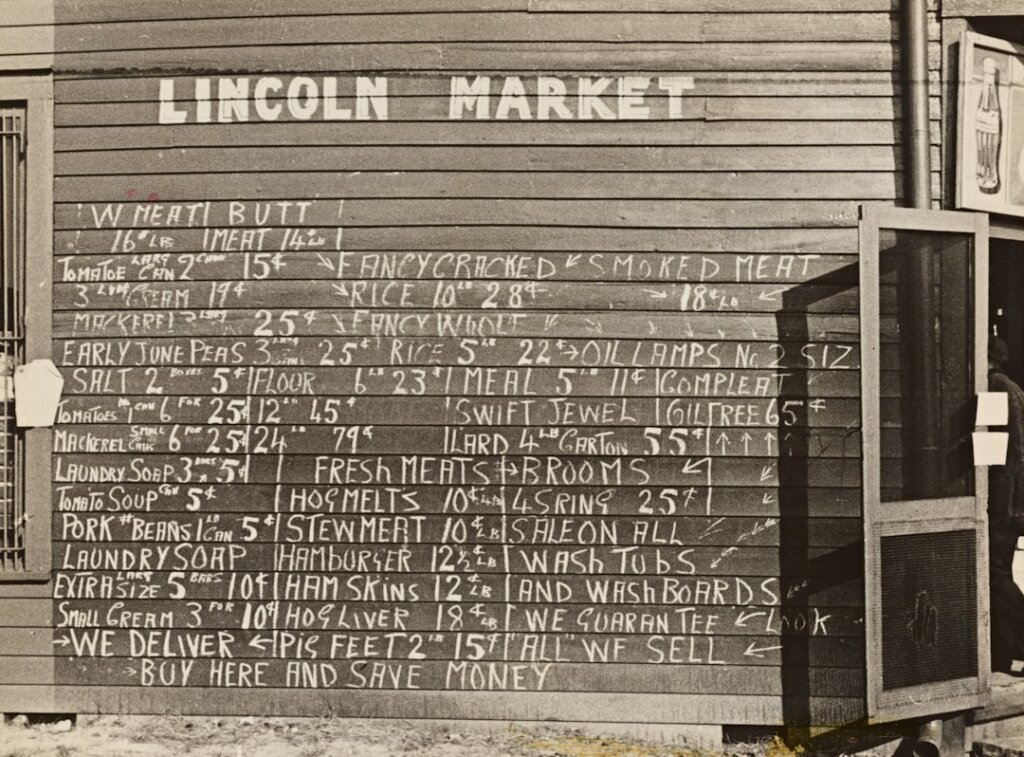 LINCOLN MARKET
W MEAT | BUTT
16¢ LB | MEAT 14¢ LB
TOMATOE LARG CAN 2 CANS 15¢ → FANCY CRACKED ← SMOKED MEAT
3 CREAM 19¢ → RICE 10 LB 28¢ → 18¢ LB ←
MACKEREL 25¢ FANCY WHOLE
EARLY JUNE PEAS 3 CANS 25¢ RICE 5 LB 22¢ → OIL LAMPS No 2 SIZ
SALT 2 BOXES 5¢ | FLOUR 6 LB 23¢ | MEAL 5 LB 11¢ | COMPLEAT
TOMATOES CAN 6 FOR 25¢ | 12 LB 45¢ SWIFT JEWEL | OIL FREE 65¢
MACKEREL SMALL CANS 6 FOR 25¢ | 24 LB 79¢ | LARD 4 LB CARTON 55¢ | ↑ ↑ ↑ ↑
LAUNDRY SOAP 3 BARS 5¢ | FRESH MEATS → BROOMS ↙
TOMATO SOUP CAN 5¢ | HOG MELTS 10¢ LB | 4 SRING 25¢
PORK & BEANS 1 LB CAN 5¢ | STEW MEAT 10¢ LB | SALE ON ALL
LAUNDRY SOAP | HAMBURGER 12½¢ LB | WASH TUBS ↙
EXTRA LARG SIZE 5 BARS 10¢ | HAM SKINS 12¢ LB | AND WASH BOARDS
SMALL CREAM 3 FOR 10¢ | HOG LIVER 18¢ LB | WE GUARANTEE ← LOOK
→ WE DELIVER ← | PIG FEET 2 LB 15¢ | "ALL" WE SELL ←
→ BUY HERE AND SAVE MONEY